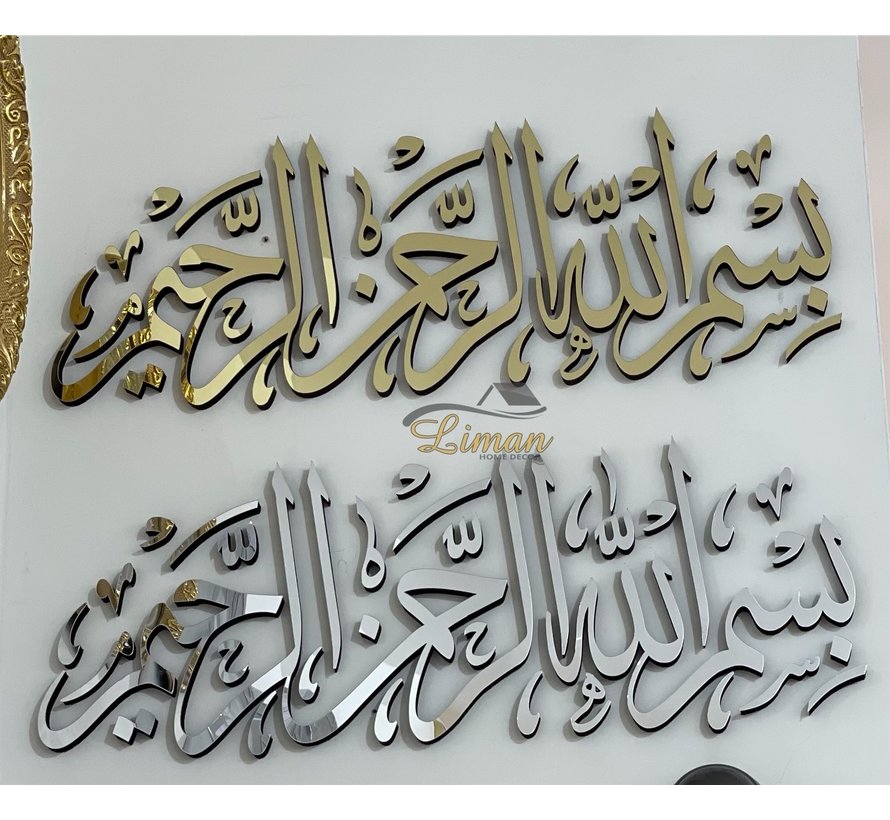 بِسْمِ اللّٰهِ الرَّحْمٰنِ الرَّحِيْمِ
Liman
HOME DECOR
بِسْمِ اللّٰهِ الرَّحْمٰنِ الرَّحِيْمِ